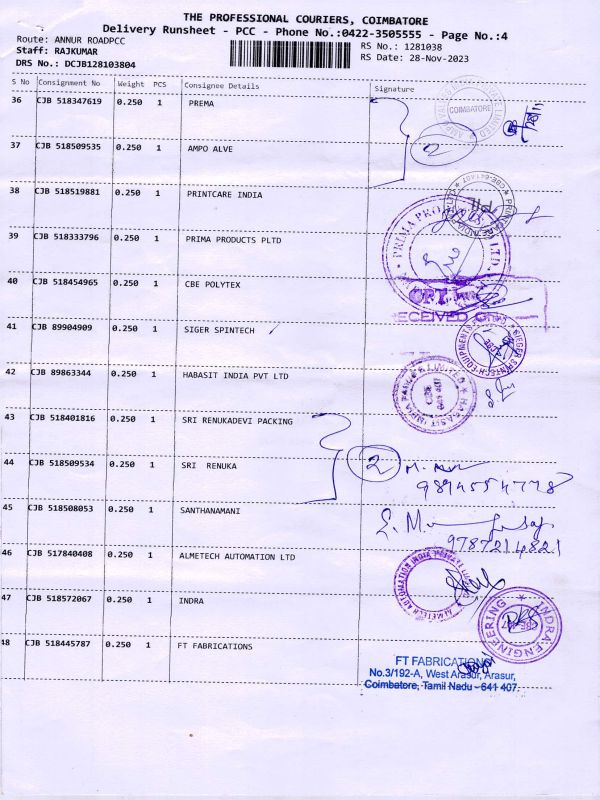 THE PROFESSIONAL COURIERS, COIMBATORE
Delivery Runsheet - PCC - Phone No.:0422-3505555 - Page No.:4
Route: ANNUR ROADPCC
Staff: RAJKUMAR
DRS No.: DCJB128103804
RS No.: 1281038
RS Date: 28-Nov-2023
S No Consignment No Weight PCS Consignee Details Signature
36 CJB 518347619 0.250 1 PREMA
COIMBATORE
37 CJB 518509535 0.250 1 AMPO ALVE
2
38 CJB 518519881 0.250 1 PRINTCARE INDIA
39 CJB 518333796 0.250 1 PRIMA PRODUCTS PLTD
40 CJB 518454965 0.250 1 CBE POLYTEX
RECEIVED
41 CJB 89904909 0.250 1 SIGER SPINTECH
42 CJB 89863344 0.250 1 HABASIT INDIA PVT LTD
43 CJB 518401816 0.250 1 SRI RENUKADEVI PACKING
44 CJB 518509534 0.250 1 SRI RENUKA
2
9894554778
45 CJB 518508053 0.250 1 SANTHANAMANI
9787214821
46 CJB 517840408 0.250 1 ALMETECH AUTOMATION LTD
47 CJB 518572067 0.250 1 INDRA
INDRA ENGINEERING
48 CJB 518445787 0.250 1 FT FABRICATIONS
FT FABRICATIONS
No.3/192-A, West Arasur, Arasur,
Coimbatore, Tamil Nadu - 641 407.